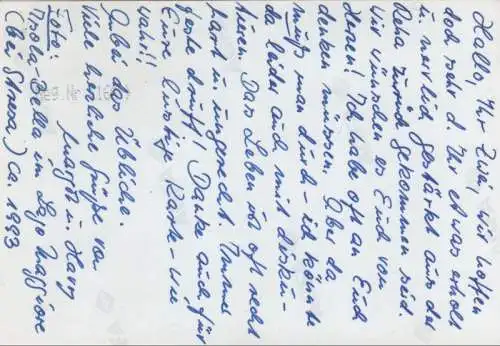 Hallo, Ihr Zwei, wir hoffen
doch sehr d. Ihr etwas erholt
u. nervlich gestärkt aus der
Reha zurück gekommen seid.
Wir wünschen es Euch von
Herzen! Ich habe oft an Euch
denken müssen. Aber da
muß man durch – ich könnte
da leider auch mit disku-
tieren. Das Leben ist oft recht
hart u. ungerecht. Immer
feste druff! Danke auch für
Eure lustige Karte – wie
wahr!!
Anbei das Übliche.
Viele herzliche Grüße von
u. Harry
Foto:
Isola Bella im Lago Maggiore
(bei Stresa) ca. 1993